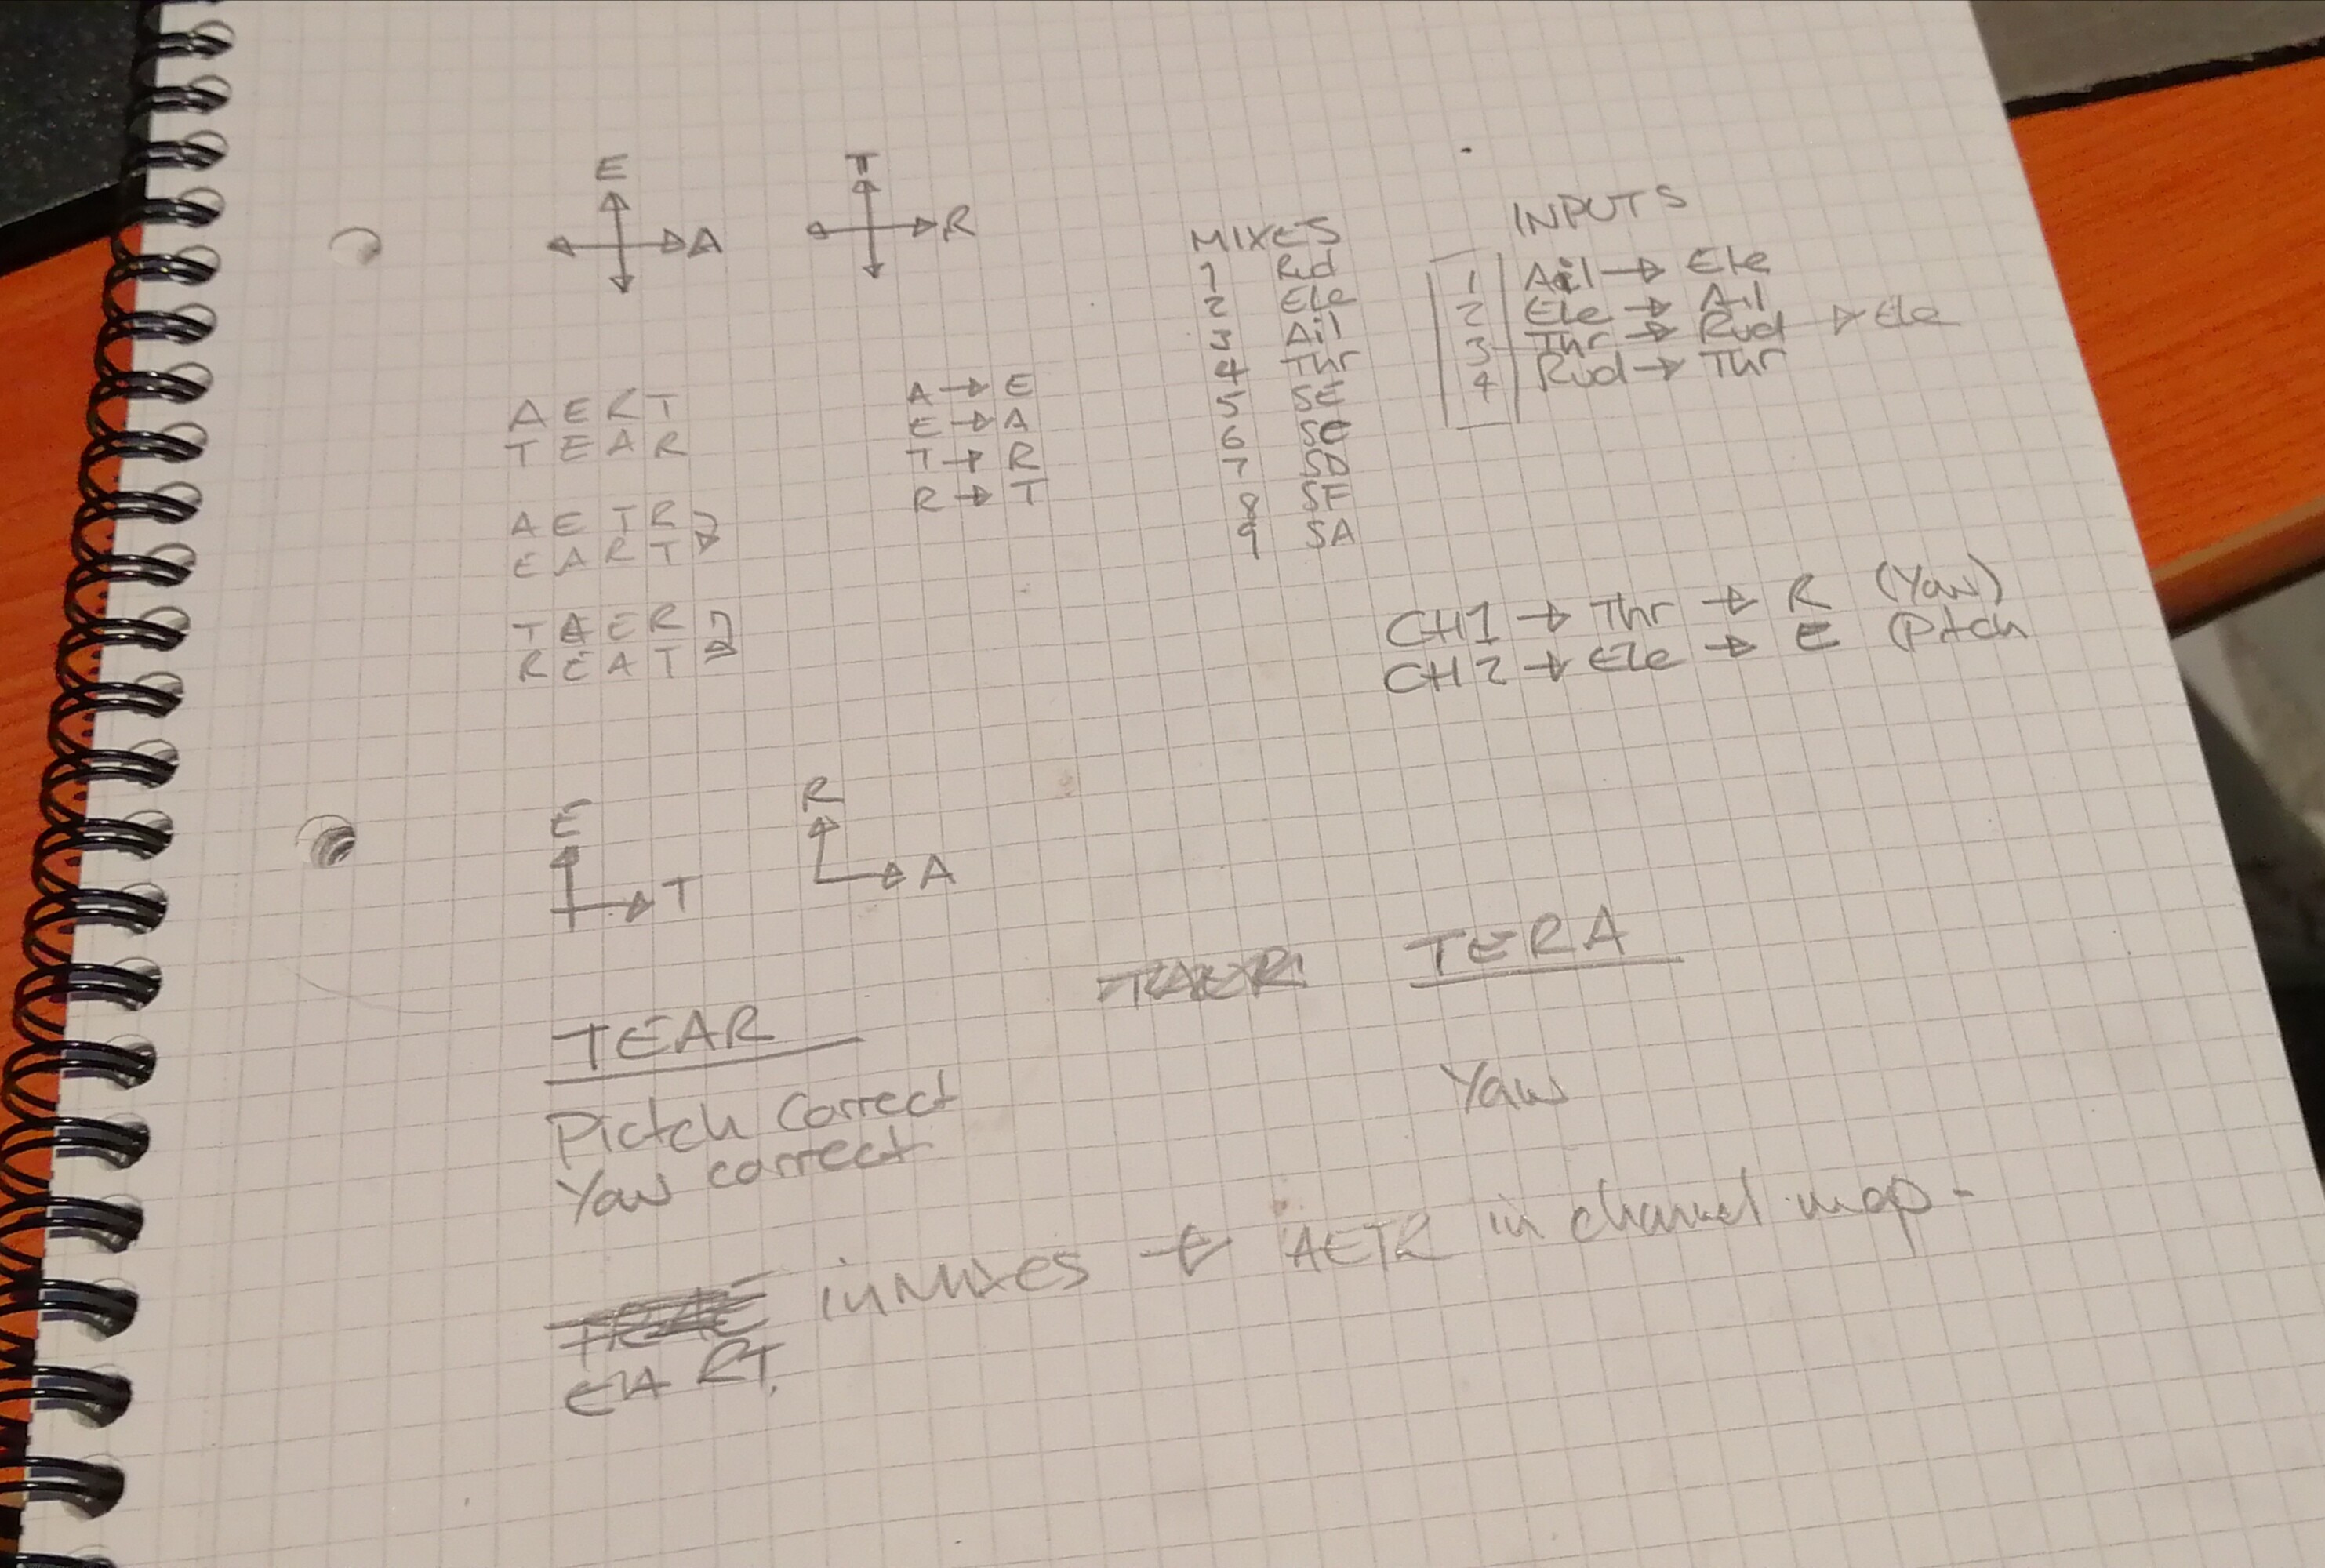 E
A
T
R
A E R T
T E A R
A E T R
E A R T
T A E R
R E A T
A → E
E → A
T → R
R → T
MIXES
1 Rud
2 Ele
3 Ail
4 Thr
5 SE
6 SC
7 SD
8 SF
9 SA
INPUTS
1 Ail → Ele
2 Ele → Ail
3 Thr → Rud → Ele
4 Rud → Thr
CH1 → Thr → R (Yaw)
CH2 → Ele → E (Pitch
E
T
R
A
TERA
TEAR
Pictch Correct
Yaw correct
Yaw
in Mixes AETR in channel map -
EA RT.